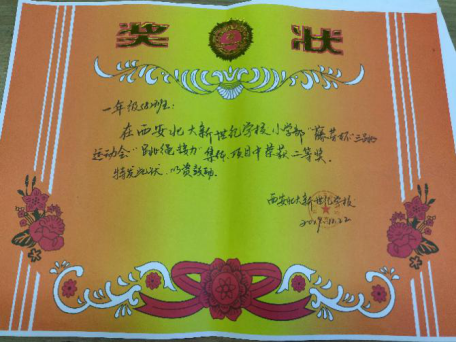 奖 状
一年级 班:
在西安北大新世纪学校小学部“ 杯”
运动会“跳绳接力”集体项目中荣获二等奖。
特发此状,以资鼓励。
西安北大新世纪学校